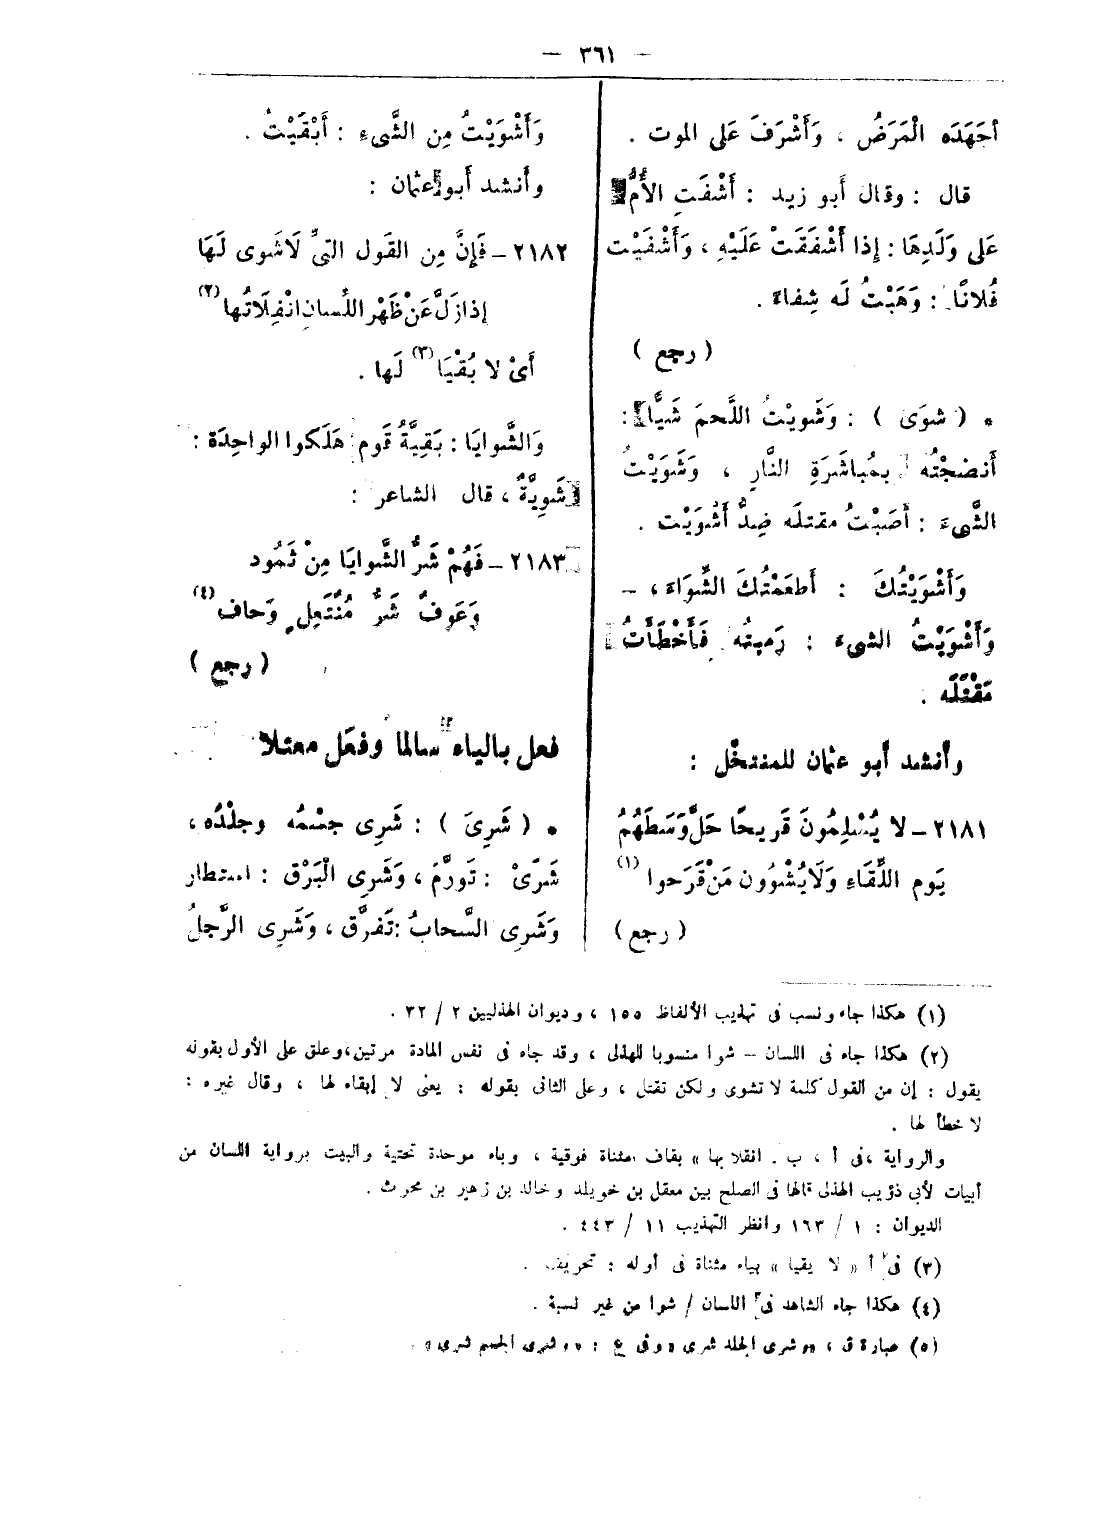 — ٣٦١ —
أجهَدَه الْمَرَضُ ، وَأَشْرَفَ عَلى الموت .
قال : وقال أَبو زيد : أَشْفَتِ الأُمُّ
عَلى وَلَدِهَا : إِذا أَشْفَقَتْ عَلَيْهِ ، وَأَشْفَيْت
فُلانًا : وَهَبْتُ لَه شِفاءً .
( رجع )
* ( شوَى ) : وَشَويْتُ اللَّحمَ شَيًّا :
أَنضجْتُه بمُباشَرَةِ النَّارِ ، وَشَوَيْتُ
الشَّىءَ : أَصَبْتُ مقتلَه ضِدُّ أَشْوَيْت .
وَأَشْوَيْتُكَ : أَطعَمْتُكَ الشِّوَاءَ ، –
وَأَشْوَيْتُ الشىءَ : رَميتُه فَأَخْطَأْتُ
مَقْتَلَه .
وأنشد أبو عثمان للمنتخّل :
٢١٨١ – لا يُسْلِمُونَ قَريحًا حَلَّ وَسَطَهُمُ
يَوم اللِّقَاءِ وَلَا يُشْوُون مَنْ قَرَحوا (١)
( رجع )
وَأَشْوَيْتُ مِن الشَّىءِ : أَبْقَيْتُ .
وأنشد أبو عثمان :
٢١٨٢ – فَإِنَّ مِن القَول التىِّ لَا شَوى لَهَا
إذا زَلَّ عَنْ ظَهْرِ اللِّسانِ انْفِلَاتُها (٢)
أَىْ لا بُقْيَا (٣) لَها .
وَالشَّوايَا : بَقِيَّةُ قَوم هَلَكوا الواحِدَة :
شَوِيَّةٌ ، قال الشاعر :
٢١٨٣ – فَهُمْ شَرُّ الشَّوايَا مِنْ ثَمُود
وَعَوفٌ شَرُّ مُنْتَعِلٍ وَحاف (٤)
( رجع )
فعِل بالياء سالما وفعَل معتلا
* ( شَرِىَ ) : شَرِى جسْمُه وجلْدُه ،
شَرًى : تَورَّمَ ، وَشَرِى الْبَرْق : استطار
وَشَرى السَّحابُ : تَفرَّق ، وَشَرِى الرَّجلُ
(١) هكذا جاء ونسب فى تهذيب الألفاظ ١٥٥ ، وديوان الهذليين ٢ / ٣٢ .
(٢) هكذا جاء فى اللسان – شوا منسوبا للهذلى ، وقد جاء فى نفس المادة مرتين ، وعلق على الأول بقوله
يقول : إن من القول كلمة لا تشوى ولكن تقتل ، وعلى الثانى بقوله : يعنى لا إبقاء لها ، وقال غيره :
لا خطأ لها .
والرواية ، فى أ ، ب . انقلابها » بقاف مثناة فوقية ، وباء موحدة تحتية والبيت برواية اللسان من
أبيات لأبى ذؤيب الهذلى قالها فى الصلح بين معقل بن خويلد وخالد بن زهير بن محرث .
الديوان : ١ / ١٦٣ وانظر التهذيب ١١ / ٤٤٣ .
(٣) فى أ « لا يقيا » بياء مثناة فى أوله : تحريف .
(٤) هكذا جاء الشاهد فى اللسان / شوا من غير نسبة .
(٥) عبارة ق ، « وشرى الجلد شرى » وفى ع : « وشرى الجسم شرى » .